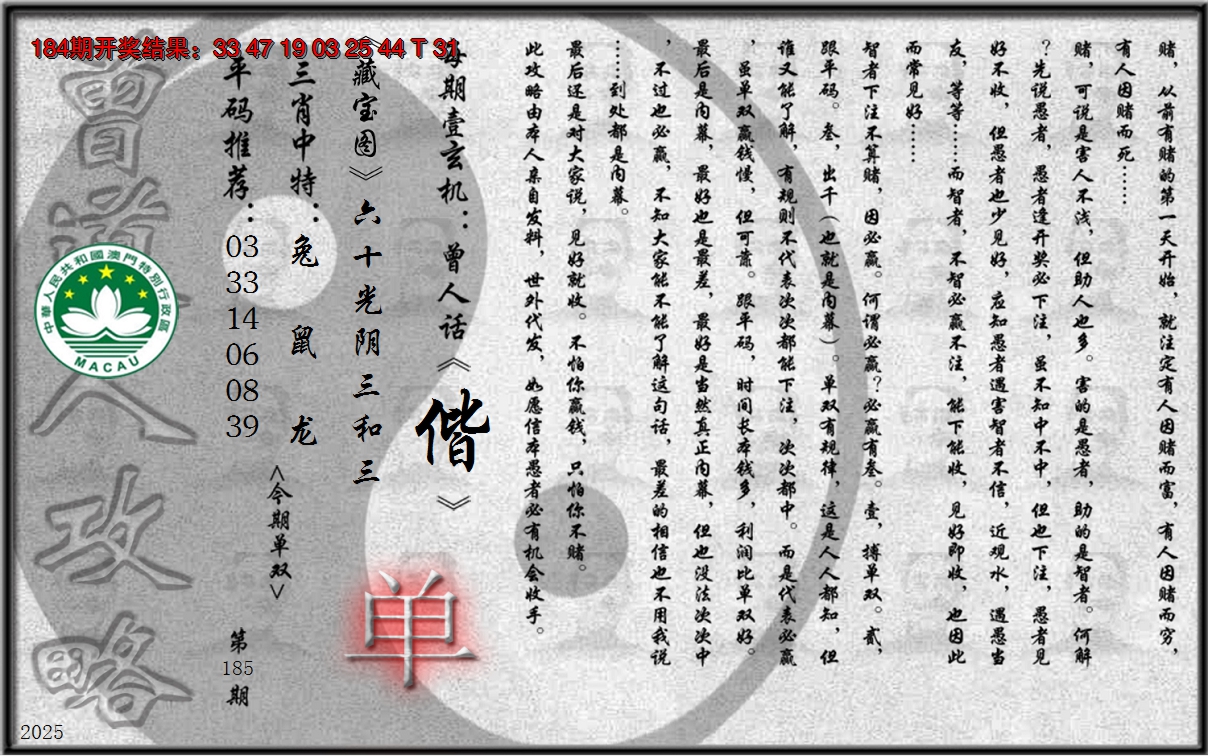 184期开奖结果：33 47 19 03 25 44 T 31
赌，从前有赌的第一天开始，就注定有人因赌而富，有人因赌而穷，
有人因赌而死……
赌，可说是害人不浅，但助人也多。害的是愚者，助的是智者。何解
？先说愚者，愚者逢开奖必下注，虽不知中不中，但也下注，愚者见
好不收，但愚者也少见好，应知愚者遇害智者不信，近观水，遇愚当
友，等等……而智者，不智必赢不注，能下能收，见好即收，也因此
而常见好……
智者下注不算赌，因必赢。何谓必赢？必赢有叁。壹，搏单双。贰，
跟平码。叁，出千（也就是内幕）。单双有规律，这是人人都知，但
谁又能了解，有规则不代表次次都能下注，次次都中。而是代表必赢
，虽单双赢钱慢，但可靠。跟平码，时间长本钱多，利润比单双好。
最后是内幕，最好也是最差，最好是当然真正内幕，但也没法次次中
，不过也必赢，不知大家能不能了解这句话，最差的相信也不用我说
……到处都是内幕。
最后还是对大家说，见好就收。不怕你赢钱，只怕你不赌。
此攻略由本人亲自发料，世外代发，如愿信本愚者必有机会收手。
每期壹玄机：曾人话《偕》
《藏宝图》六十光阴三和三
单
三肖中特：兔 鼠 龙
<今期单双>
平码推荐：
03
33
14
06
08
39
第
185
期
曾道人攻略
中華人民共和國澳門特別行政區
MACAU
2025